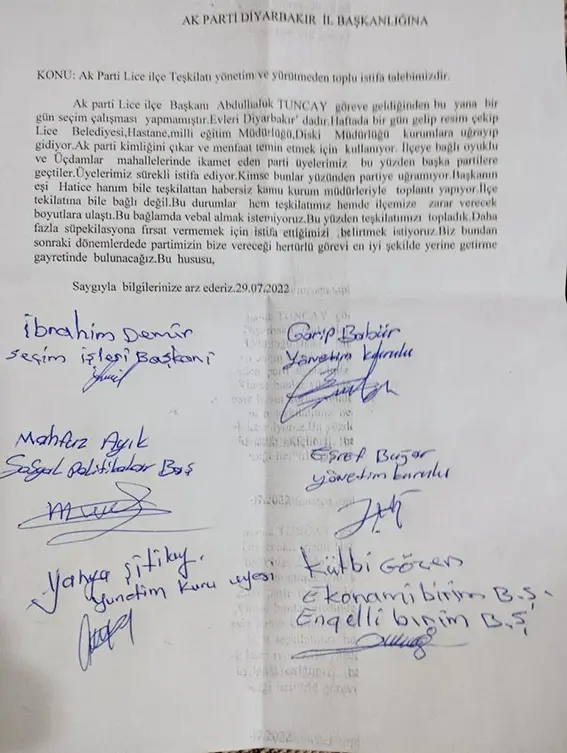 AK PARTİ DİYARBAKIR İL BAŞKANLIĞINA
KONU: Ak Parti Lice ilçe Teşkilatı yönetim ve yürütmeden toplu istifa talebimizdir.
Ak parti Lice ilçe Başkanı Abdulhaluk TUNCAY göreve geldiğinden bu yana bir
gün seçim çalışması yapmamıştır.Evleri Diyarbakır' dadır.Haftada bir gün gelip resim çekip
Lice Belediyesi,Hastane,milli eğitim Müdürlüğü,Diski Müdürlüğü kurumlara uğrayıp
gidiyor.Ak parti kimliğini çıkar ve menfaat temin etmek için kullanıyor. İlçeye bağlı oyuklu
ve Üçdamlar mahallelerinde ikamet eden parti üyelerimiz bu yüzden başka partilere
geçtiler.Üyelerimiz sürekli istifa ediyor.Kimse bunlar yüzünden partiye uğramıyor.Başkanın
eşi Hatice hanım bile teşkilattan habersiz kamu kurum müdürleriyle toplantı yapıyor.İlçe
tekilatına bile bağlı değil.Bu durumlar hem teşkilatımız hemde ilçemize zarar verecek
boyutlara ulaştı.Bu bağlamda vebal almak istemiyoruz.Bu yüzden teşkilatımızı topladık.Daha
fazla süpekilasyona fırsat vermemek için istifa ettiğimizi belirtmek istiyoruz.Biz bundan
sonraki dönemlerdede partimizin bize vereceği hertürlü görevi en iyi şekilde yerine getirme
gayretinde bulunacağız.Bu hususu,
Saygıyla bilgilerinize arz ederiz.29.07.2022
İbrahim Demir
Seçim işleri Başkanı
Garip Babür
Yönetim kurulu
Mahfuz Ayık
Sosyal politikalar Baş
Eşref Buğar
yönetim kurulu
Yahya
yunetim Kuru uyesi
Kutbi Göçen
Ekonami birim B.Ş.
Engelli birim B.Ş